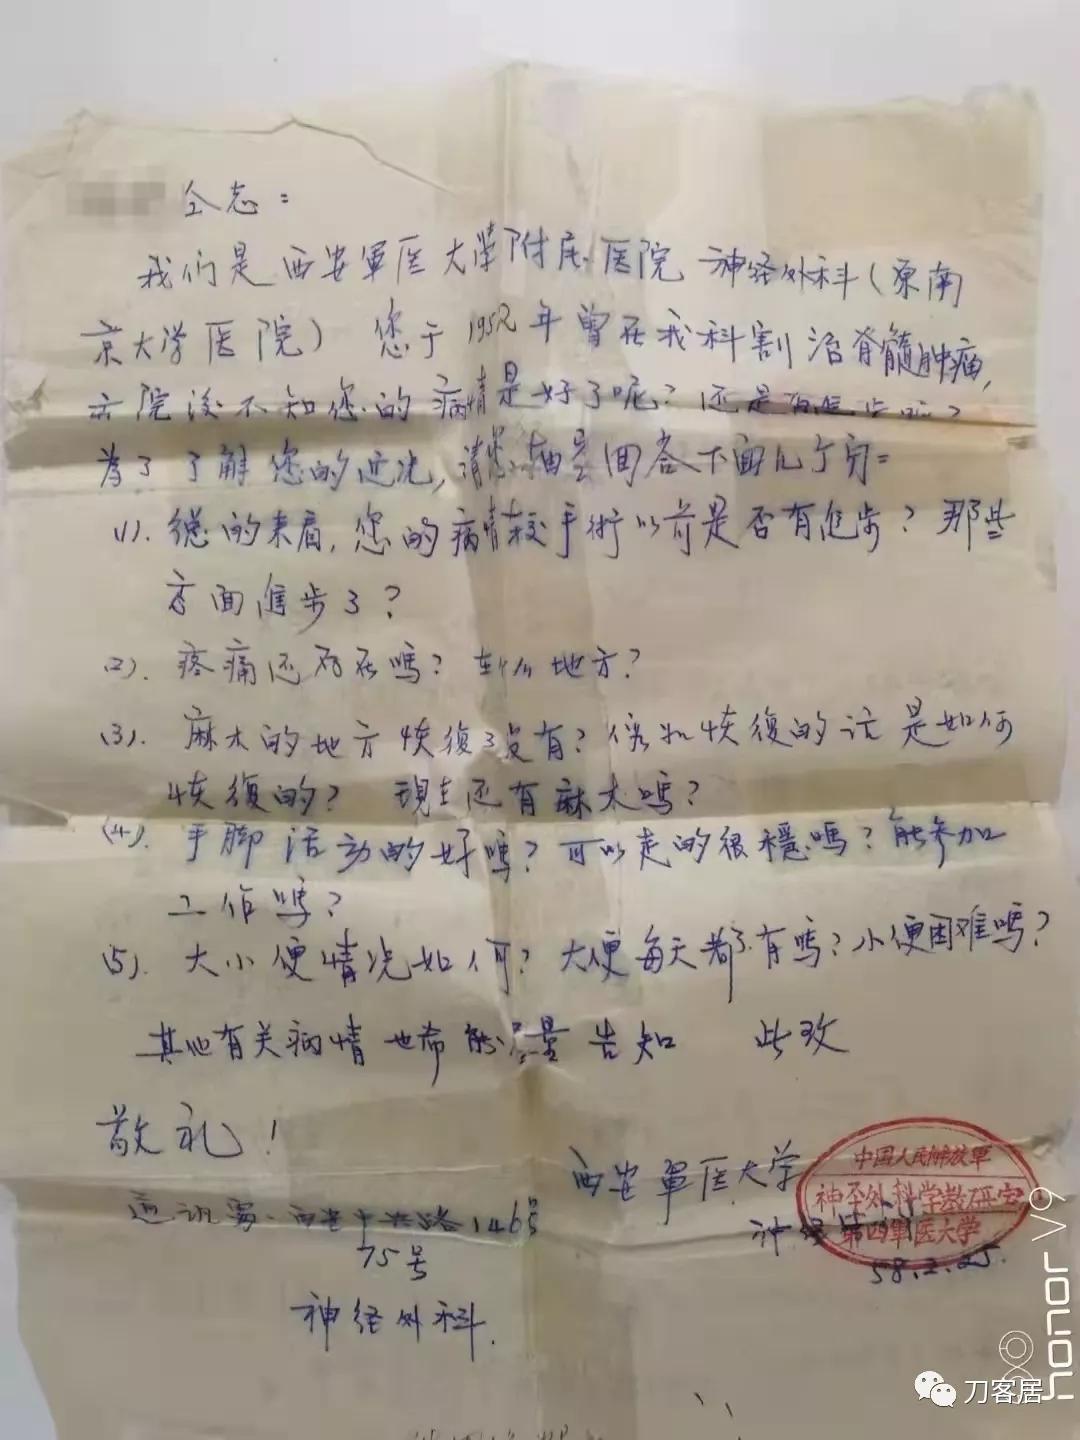 仝志：
我们是西安軍医大学附属医院神经外科（原南
京大学医院）您于1952年曾在我科割治脊髓肿瘤，
去院後不知您的病情是好了呢？还是
為了了解您的近况，请您抽空回答下面几个问：
(1). 總的来看，您的病情較手術以前是否有進步？那些
方面進步了？
(2). 疼痛还存在嗎？在什么地方？
(3). 麻木的地方恢復了没有？恢復的话是如何
恢復的？ 現在还有麻木嗎？
(4). 手脚活动的好嗎？可以走的很穩嗎？能参加
工作嗎？
(5). 大小便情况如何？大便每天都有嗎？小便困难嗎？
其他有关病情也希能尽量告知 此致
敬礼！
西安軍医大学
神经外科
58.2.25.
通訊处：西安 146号
75号
神经外科.
中国人民解放軍
神经外科学教研室
第四軍医大学
honor V9
刀客居